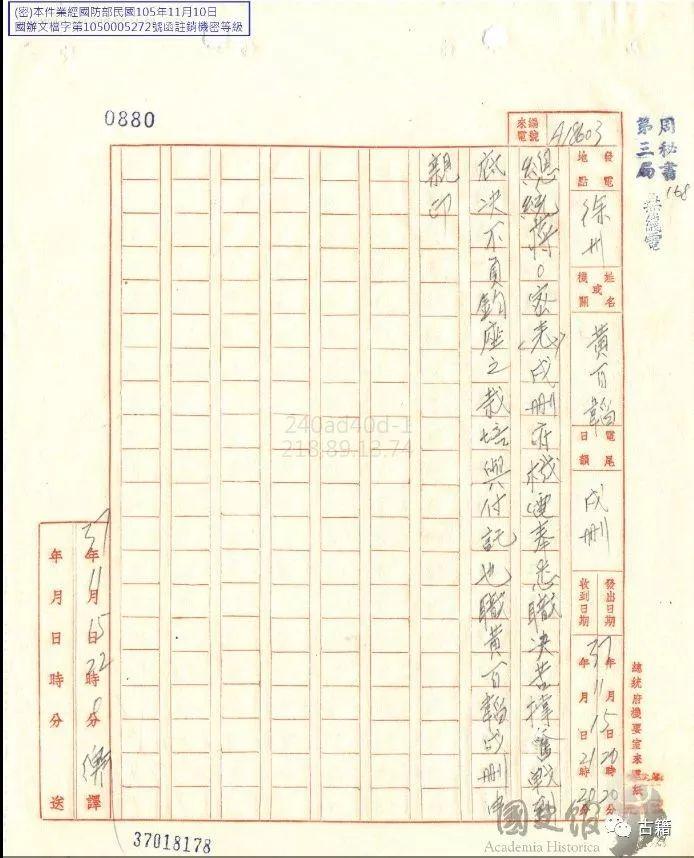 (密)本件業經國防部民國105年11月10日
國辦文檔字第1050005272號函註銷機密等級
0880
周秘書
第三局
168
無線電
來電編號 A18603
發電地點 徐州
姓名或機關 黃百韜
電尾日韻 戌刪
發出日期 37年11月15日20時20分
收到日期 年 月 日21時20分
總統府機要室來電紙
總統蔣0密(老)戌刪府機電奉悉職決苦撐奮戰到
底決不負鈞座之栽培與付託也職黃百韜戌刪申
親印
37年11月15日22時8分 譯
年 月 日 時 分 送
240ad40d-1
218.89.13.74
37018178
國史館
Academia Historica
古籍